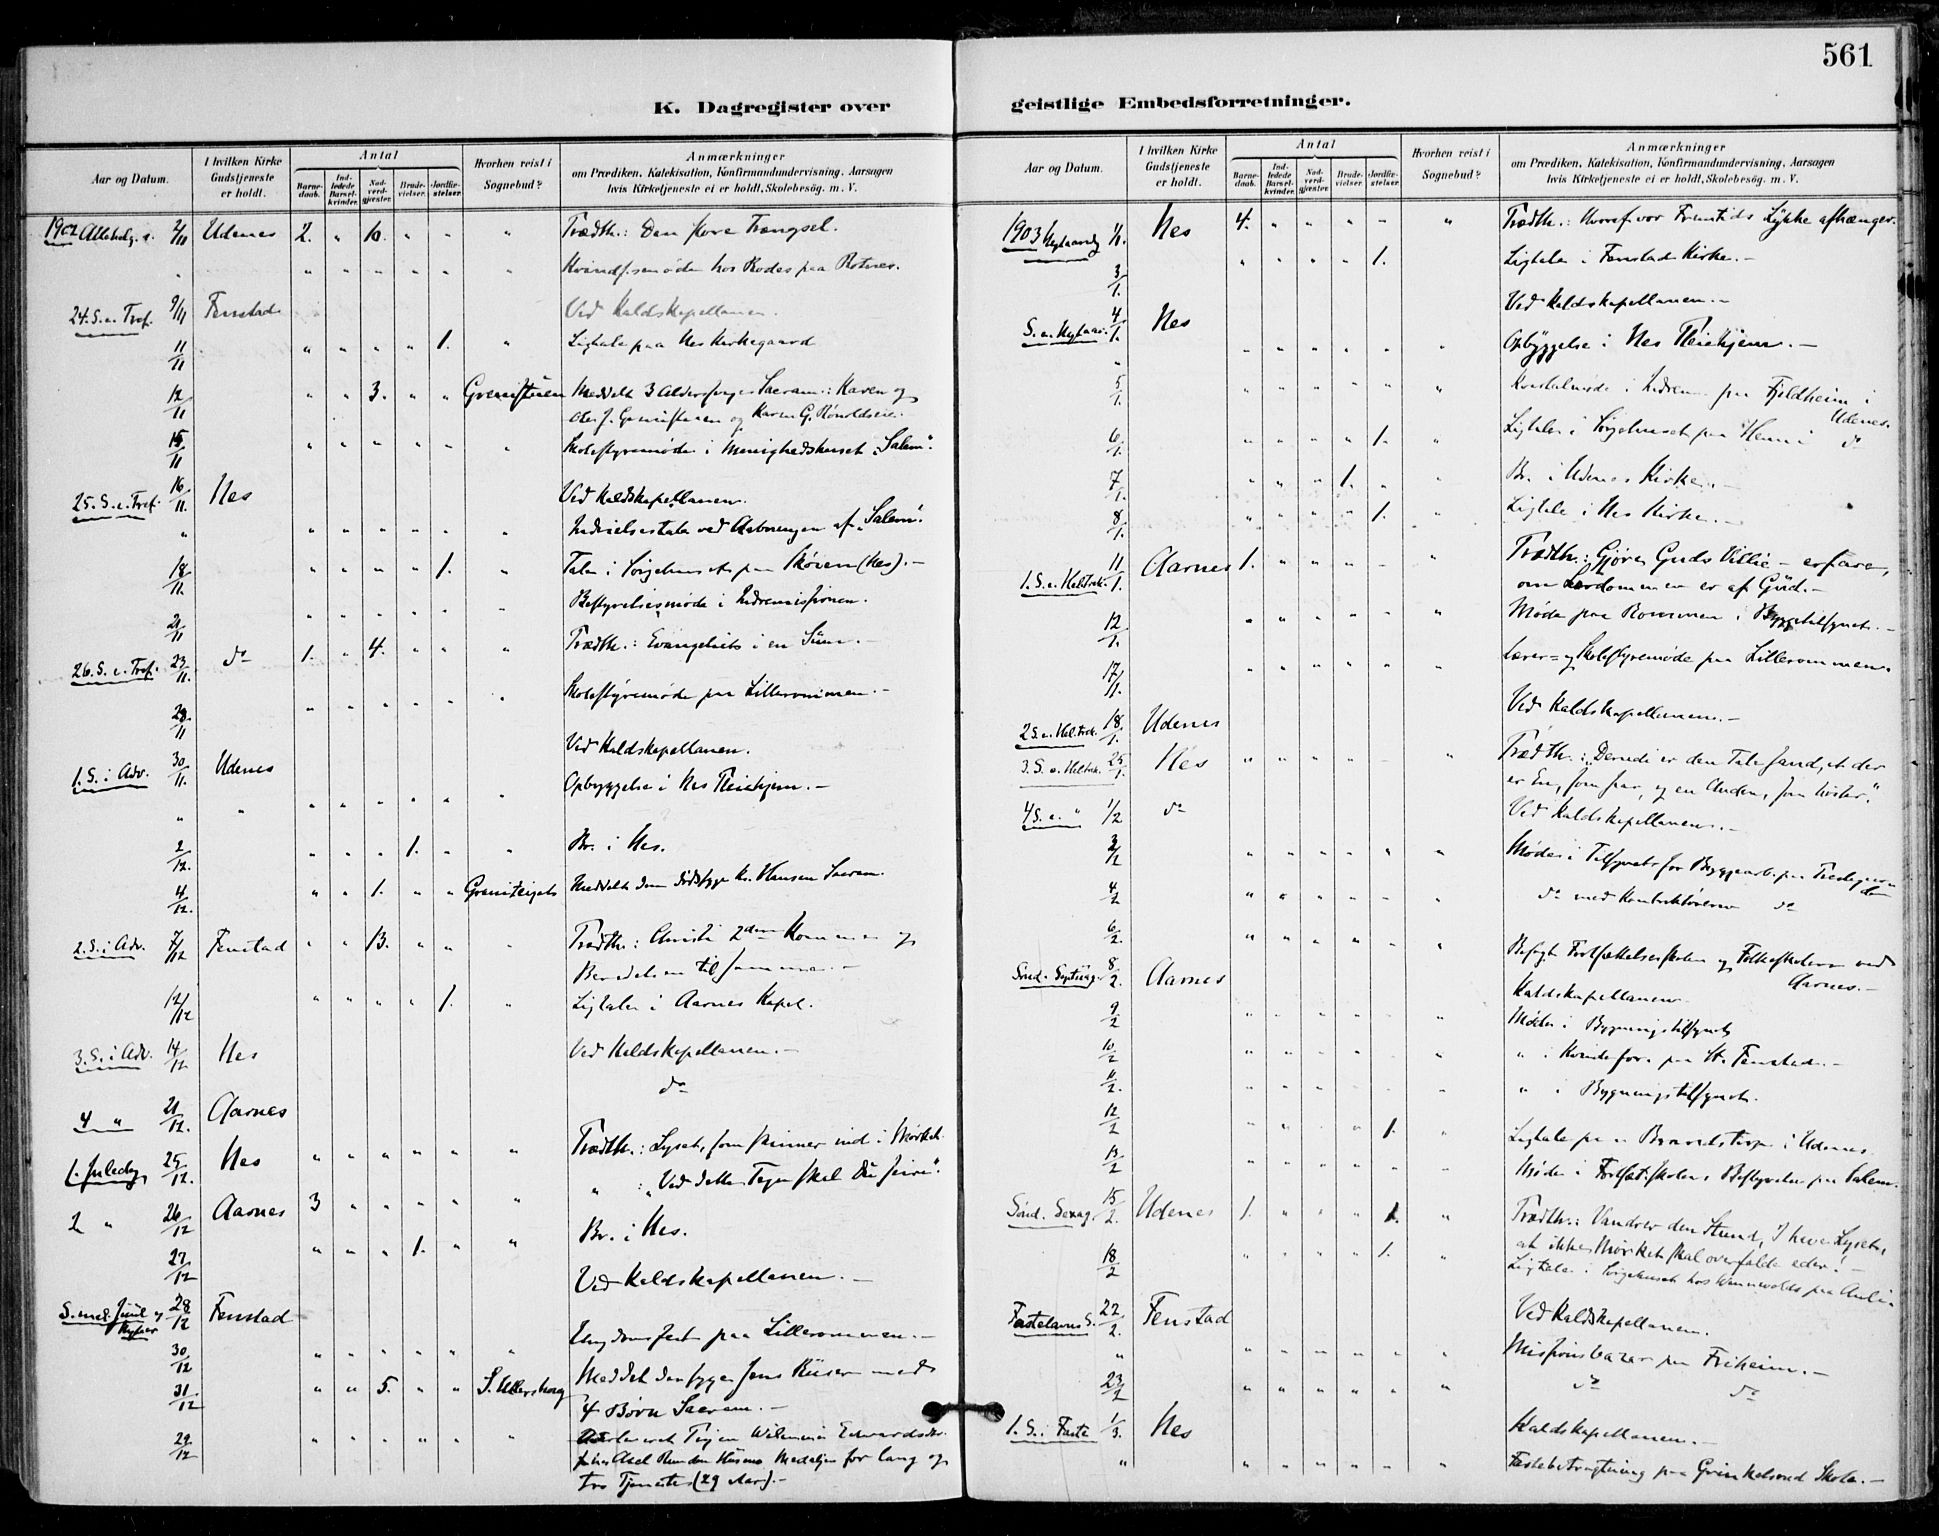 561
K. Dagregister over
geistlige Embedsforretninger.
Aar og Datum.
I hvilken Kirke Gudstjeneste er holdt.
Antal
Barnedaab.
Indledede Barselkvinder.
Nadverdgjæster.
Brudevielser.
Jordfæstelser.
Hvorhen reist i Sognebud?
Anmærkninger
om Prædiken, Katekisation, Konfirmandundervisning, Aarsagen
hvis Kirketjeneste ei er holdt, Skolebesøg. m. V.
1902 Allehelg. s. 2/11 Udenes 2. " 16. " " " Trædth.: Den store Trængsel.
" " " " " " hos Rodes paa Rotnes.
24. S. e. Tref. 9/11 Fenstad Ved Kaldskapellanen.
11/11 " " " " 1. " Ligtale paa Nes Kirkegaard
12/11 " " 3. " " Grenistuen Meddelt 3 Sacram.: Karen og
og Karen G.
15/11 " " " " " " Skolestyremøde i Menighedshuset "Salem".
25. S. e. Tref. 16/11 Nes Ved Kaldskapellanen.
" " " " " " " Indvielsestale ved Aabningen af "Salem".
18/11. " " " " 1. " Tale i Sørgehuset paa Skøven (Nes). –
21/11 " " " " " " Bestyrelsesmøde i Indremissionen.
26. S. e. Tref. 23/11. do 1. " 4. " " " Trædth.: Evangeliets i en Sum. –
28/11 " " " " " " Skolestyremøde paa Lillerommen. –
1. S. i Adv. 30/11. Udenes Ved Kaldskapellanen.
" " " " " " " " Opbyggelse i Nes Pleiehjem. –
2/12. " " " 1. " " Br. i Nes.
4/12. " " 1. " " Meddelt den Hansen Sacram.
2. S. i Adv. 7/12 Fenstad " " 13. " " " Trædth.: Christi 2den Komme og
Beredelsen til samme. –
12/12 " " " " 1. " Ligtale i Aarnes Kapel.
3. S. i Adv. 14/12 Nes Ved Kaldskapellanen. –
4 " 21/12. Aarnes do
1. Juledag 25/12. Nes " " " " " " Trædth.: Lyset, som skinner ind i Mørket.
2 " 26/12 Aarnes 3 " " " " " " : "Ved dette Tegn skal Du seire".
27/12 " " " 1. " " Br. i Nes.
S. mel. Juul og Nytaar 28/12 Fenstad Ved Kaldskapellanen. –
30/12 " " " " " " Ungdomsfest paa Lillerommen. –
31/12 " " 5. " " S. Ullershov Meddelt den syge Jens med
4 Børn Sacram. –
29/12 " " " " " " Tjen Edvardsdtr.
Medaljen for lang og
tro Tjeneste (29 Aar). –
Aar og Datum.
I hvilken Kirke Gudstjeneste er holdt.
Antal
Barnedaab.
Indledede Barselkvinder.
Nadverdgjæster.
Brudevielser.
Jordfæstelser.
Hvorhen reist i Sognebud?
Anmærkninger
om Prædiken, Katekisation, Konfirmandundervisning, Aarsagen
hvis Kirketjeneste ei er holdt, Skolebesøg. m. V.
1903 Nytaarsdg 1/1. Nes 4. " " " " " Trædth.: Hvoraf vor Fremtids Lykke afhænger.
3/1. " " " " 1. " Ligtale i Fenstad Kirke. –
S. e. Nytaar. 4/1. Nes Ved Kaldskapellanen. –
" " " " " " " Opbyggelse i Nes Pleiehjem. –
5/1. " " " " " " i Indrem. paa Fjeldheim i
Udenes.
6/1. " " " " 1. " Ligtale i Sørgehuset paa Hem i do
7/1. " " " 1. " " Br. i Udenes Kirke. –
8/1. " " " " 1. " Ligtale i Nes Kirke. –
1. S. e. Hel.trek. 11/1. Aarnes 1. " " " " " Trædth.: Gjøre Guds Villie – erfare,
om Lærdommen er af Gud. –
12/1. " " " " " " Møde paa Rommen i Byggetilsynet. –
17/1. " " " " " " Lærer- og Skolestyremøde paa Lillerommen.
2 S. e. Hel.trek. 18/1. Udenes Ved Kaldskapellanen. –
3. S. e. Heltrek. 25/1. Nes " " " " " " Trædth.: "Derudi er den Tale sand, at der
er En, som saar, og en Anden, som høster."
4 S. e. " 1/2 do Ved Kaldskapellanen. –
3/2 " " " " " " Møde i Tilsynet for Byggearb. paa
4/2 " " " " " " do med Kontraktørerne do
6/2. " " " " " " Besøgt Fortsættelsesskolen og Folkeskolerne ved
Aarnes. –
Sønd. Septuag. 8/2. Aarnes Kaldskapellanen.
9/2 " " " " " " Møde i Bygningstilsynet
10/2 " " " " " " " i Kvindefor. paa St. Fenstad. –
11/2. " " " " " " " i Bygningstilsynet.
12/2 " " " " 1. " Ligtale paa i Udenes.
13/2 " " " " " " Møde i Fortsæt.skolens Bestyrelse paa Salem.
Sønd. Sexag. 15/2. Udenes 1. " " " 1. " Trædth.: Vandrer den Stund, I have Lyset,
at ikke Mørket skal overfalde eder! –
18/2 " " " " 1. " Ligtale i Sørgehuset hos paa
Fastelavns S. 22/2. Fenstad Ved Kaldskapellanen.
" " " " " " " Missionsbazar paa Friheim. –
23/2 " " " " " " do do
1. S. i Faste 1/3. Nes Kaldskapellanen. –
" " " " " " " Fastebetragtning paa Skole. –